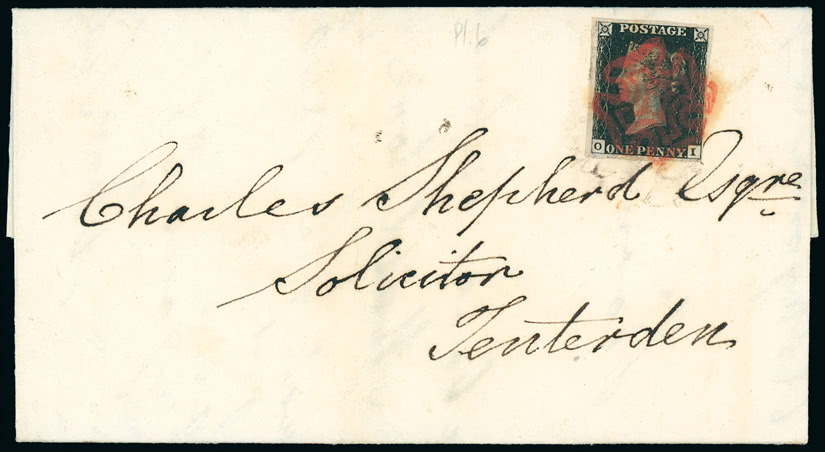 Pl. 6
POSTAGE
O ONE PENNY. I
Charles Shepherd Esqre
Solicitor
Tenterden